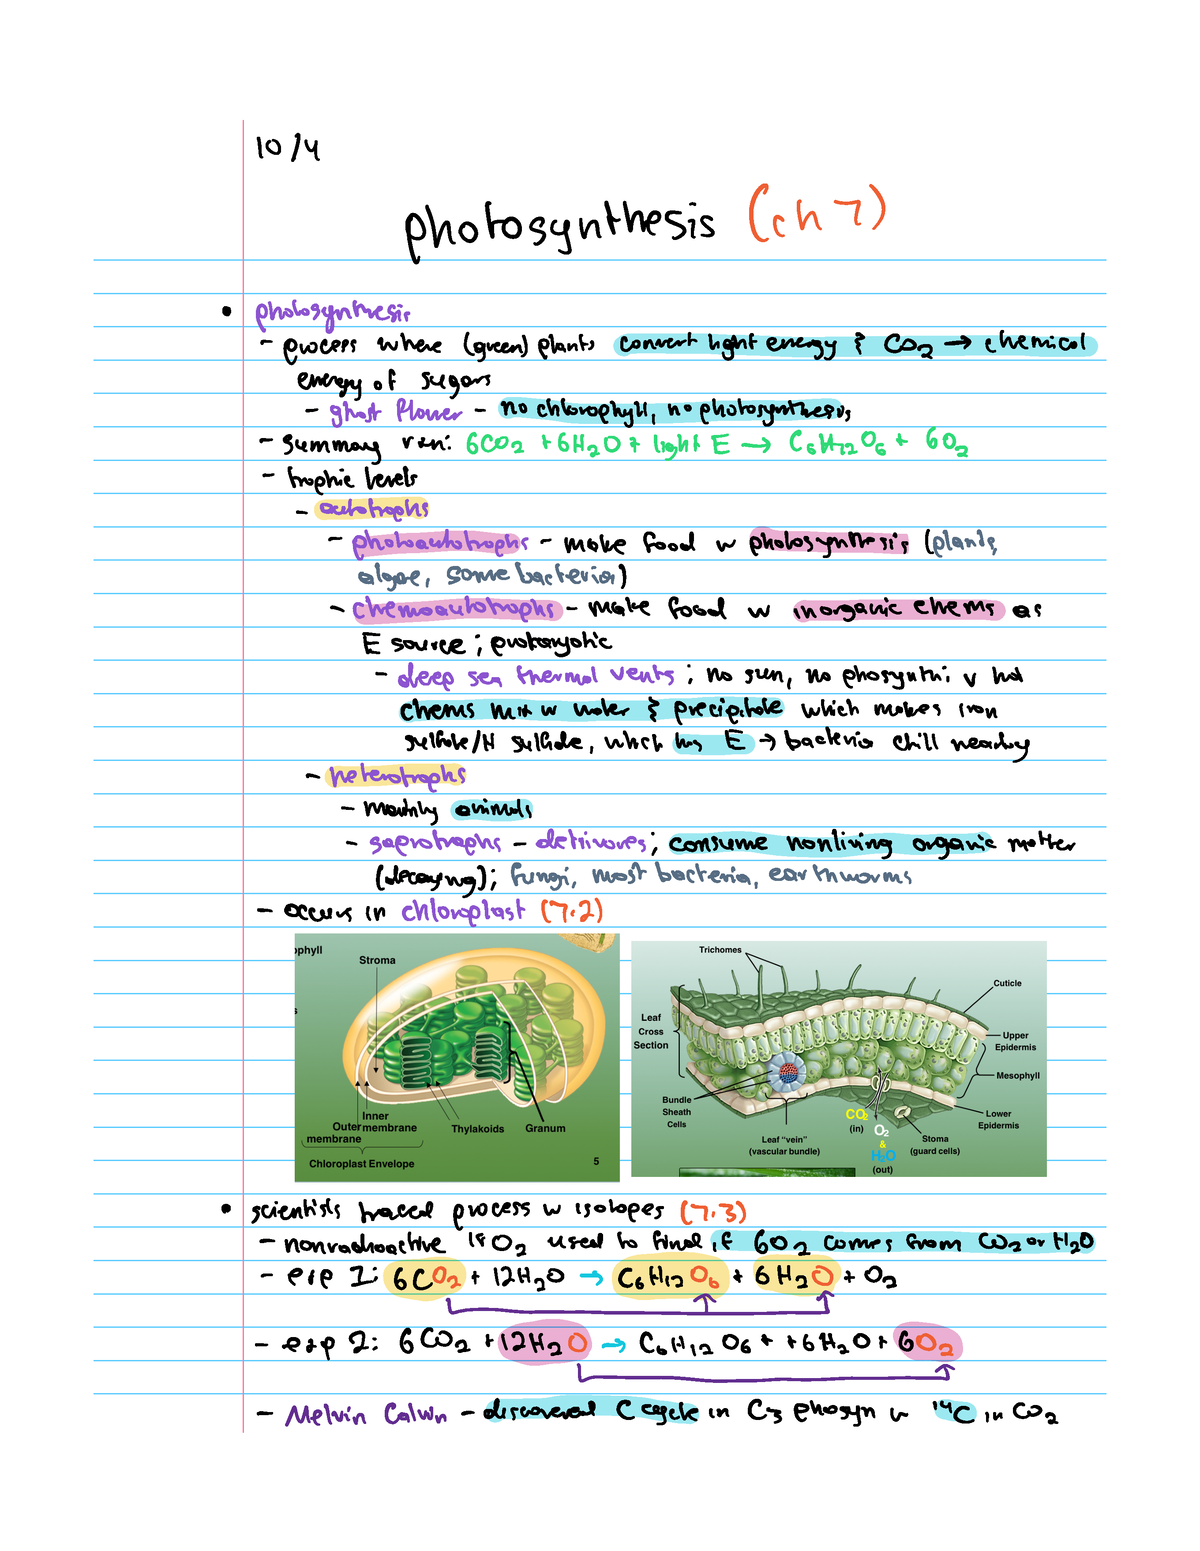 10/4
photosynthesis (ch 7)
• photosynthesis
- process where (green) plants convert light energy & CO2 → chemical
energy of sugars
- ghost flower - no chlorophyll, no photosynthesis
- summary rxn: 6CO2 + 6H2O + light E → C6H12O6 + 6O2
- trophic levels
- autotrophs
- photoautotrophs - make food w photosynthesis (plants,
algae, some bacteria)
- chemoautotrophs - make food w inorganic chems as
E source; prokaryotic
- deep sea thermal vents; no sun, no phosynthi v hot
chems mix w water & precipitate which makes iron
sulfide/H sulfide, which has E → bacteria chill nearby
- heterotrophs
- mainly animals
- saprotrophs - detrivores; consume nonliving organic matter
(decaying); fungi, most bacteria, earthworms
- occurs in chloroplast (7.2)
ophyll
Stroma
s
Inner
Outer membrane
membrane
Thylakoids
Granum
Chloroplast Envelope
5
Trichomes
Cuticle
Leaf
Cross
Section
Upper
Epidermis
Mesophyll
Bundle
Sheath
Cells
CO2
(in)
O2
&
H2O
(out)
Lower
Epidermis
Leaf “vein”
(vascular bundle)
Stoma
(guard cells)
• scientists traced process w isotopes (7.3)
- nonradioactive 18O2 used to find if 6O2 comes from CO2 or H2O
- exp 1: 6CO2 + 12H2O → C6H12O6 + 6H2O + O2
- exp 2: 6CO2 + 12H2O → C6H12O6 + +6H2O + 6O2
- Melvin Calvin - discovered C cycle in C3 phosyn w 14C in CO2